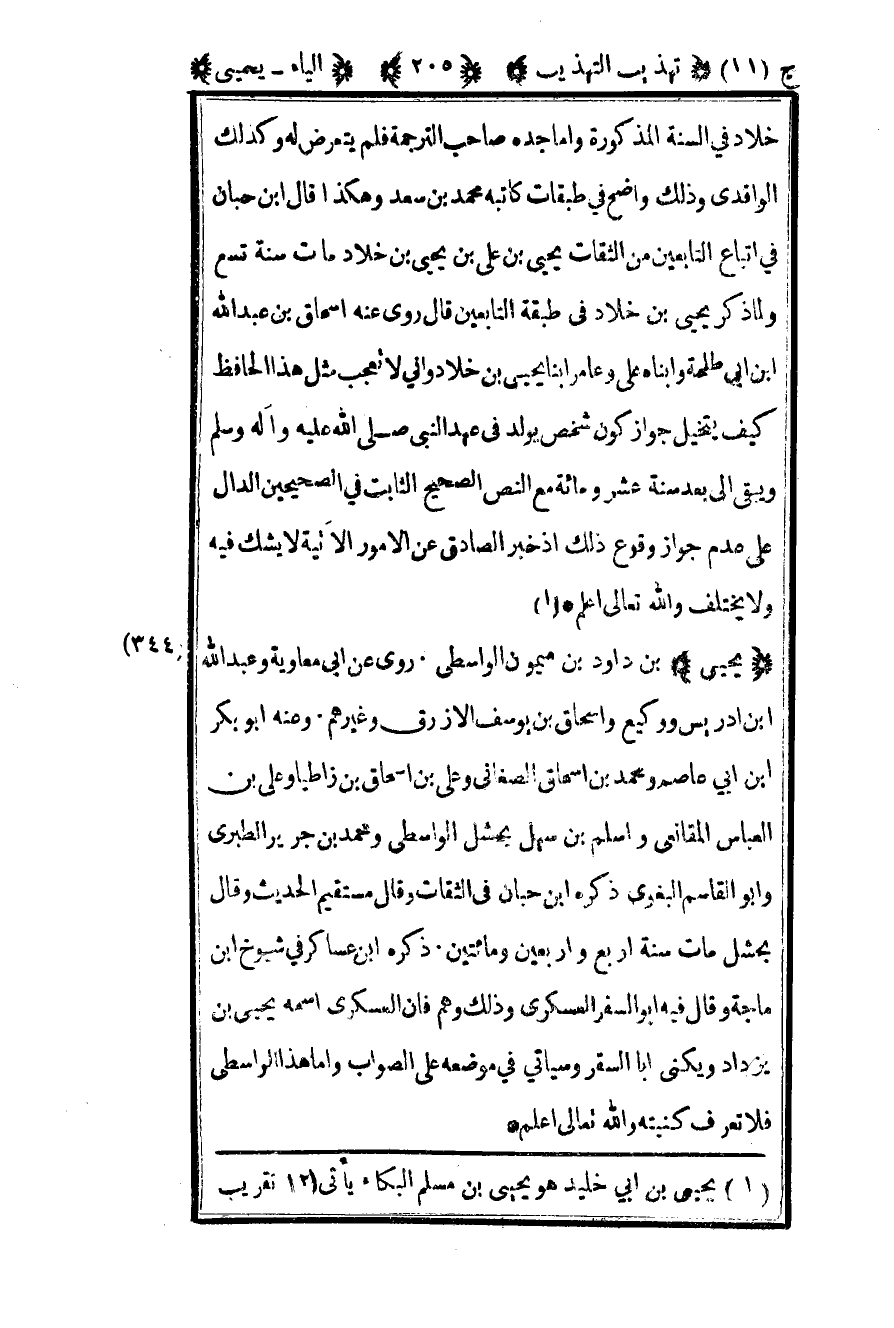 ج (١١) ﴿ تهذيب التهذيب ﴾ ﴿ ٢٠٥ ﴾ ﴿ الياء - يحيى ﴾
خلاد في السنة المذكورة واما جده صاحب الترجمة فلم يتعرض له وكذلك
الواقدى وذلك واضح في طبقات كاتبه محمد بن سعد وهكذا قال ابن حبان
في اتباع التابعين من الثقات يحيى بن على بن يحيى بن خلاد مات سنة تسع
ولما ذكر يحيى بن خلاد فى طبقة التابعين قال روى عنه اسحاق بن عبد الله
ابن ابي طلحة وابناه على وعامر ابنا يحيى بن خلاد واني لا تعجب مثل هذا الحافظ
كيف يتخيل جواز كون شخص يولد فى عهد النبى صلى الله عليه وآله وسلم
ويبقى الى بعد سنة عشر ومائة مع النص الصحيح الثابت في الصحيحين الدال
على عدم جواز وقوع ذلك اذ خبر الصادق عن الامور الآتية لا يشك فيه
ولا يختلف والله تعالى اعلم * (١)
(٣٤٤) ﴿ يحيى ﴾ بن داود بن ميمون الواسطى . روى عن ابى معاوية وعبد الله
ابن ادريس ووكيع واسحاق بن يوسف الازرق وغيرهم . وعنه ابو بكر
ابن ابي عاصم ومحمد بن اسحاق الصغانى وعلى بن اسحاق بن زاطيا وعلى بن
العباس المقانعى و اسلم بن سهل بحشل الواسطى ومحمد بن جرير الطبرى
وابو القاسم البغوى ذكره ابن حبان فى الثقات وقال مستقيم الحديث وقال
بحشل مات سنة اربع و اربعين ومائتين . ذكره ابن عساكر في شيوخ ابن
ماجة وقال فيه ابو السفر العسكرى وذلك وهم فان العسكرى اسمه يحيى بن
يزداد ويكنى ابا السقر وسياتي في موضعه على الصواب واما هذا الواسطى
فلا تعرف كنيته والله تعالى اعلم *
(١) يحيى بن ابي خليد هو يحيى بن مسلم البكاء يأتى ١٢ تقريب